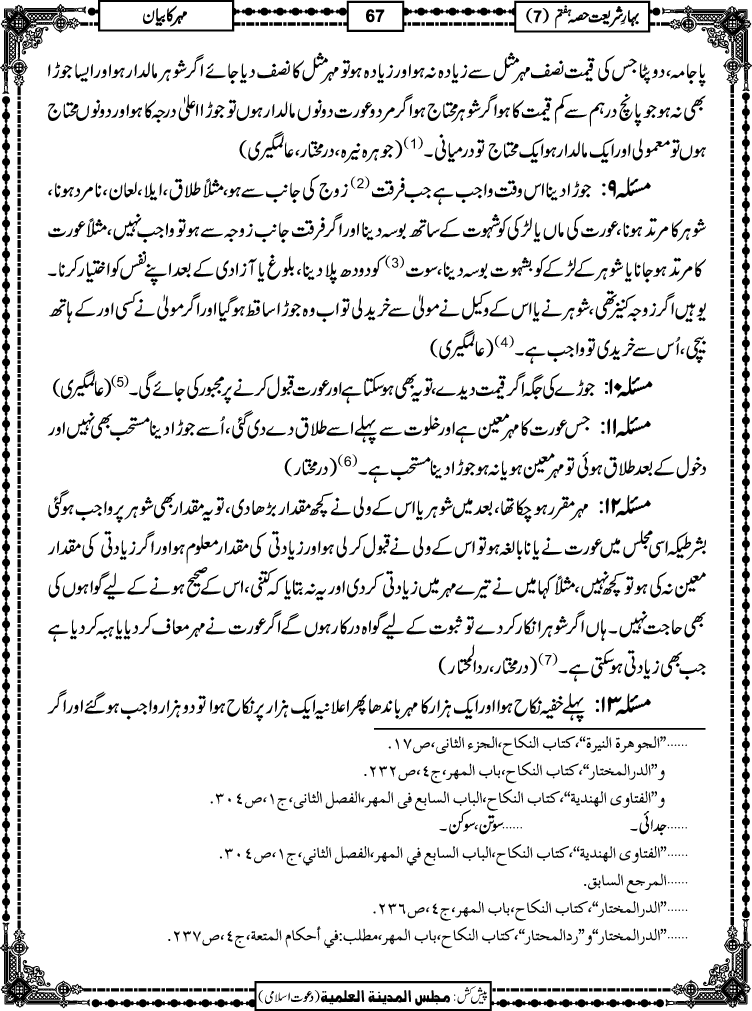 بہارِ شریعت حصہ ہفتم (7)
67
مہر کا بیان
پاجامہ، دوپٹا جس کی قیمت نصف مہرِ مثل سے زیادہ نہ ہو اور زیادہ ہو تو مہرِ مثل کا نصف دیا جائے اگر شوہر مالدار ہو اور ایسا جوڑا
بھی نہ ہو جو پانچ درہم سے کم قیمت کا ہو اگر شوہر محتاج ہو اگر مرد و عورت دونوں مالدار ہوں تو جوڑا اعلیٰ درجہ کا ہو اور دونوں محتاج
ہوں تو معمولی اور ایک مالدار ہو ایک محتاج تو درمیانی۔(1) (جوہرہ نیرہ، درمختار، عالمگیری)
مسئلہ ۹: جوڑا دینا اس وقت واجب ہے جب فرقت(2) زوج کی جانب سے ہو، مثلاً طلاق، ایلا، لعان، نامرد ہونا،
شوہر کا مرتد ہونا، عورت کی ماں یا لڑکی کو شہوت کے ساتھ بوسہ دینا اور اگر فرقت جانب زوجہ سے ہو تو واجب نہیں، مثلاً عورت
کا مرتد ہو جانا یا شوہر کے لڑکے کو بشہوت بوسہ دینا، سوت(3) کو دودھ پلا دینا، بلوغ یا آزادی کے بعد اپنے نفس کو اختیار کرنا۔
یوہیں اگر زوجہ کنیز تھی، شوہر نے یا اس کے وکیل نے مولیٰ سے خرید لی تو اب وہ جوڑا ساقط ہوگیا اور اگر مولیٰ نے کسی اور کے ہاتھ
بیچی، اُس سے خریدی تو واجب ہے۔(4) (عالمگیری)
مسئلہ ۱۰: جوڑے کی جگہ اگر قیمت دیدے، تو یہ بھی ہو سکتا ہے اور عورت قبول کرنے پر مجبور کی جائے گی۔(5) (عالمگیری)
مسئلہ ۱۱: جس عورت کا مہر معین ہے اور خلوت سے پہلے اسے طلاق دے دی گئی، اُسے جوڑا دینا مستحب بھی نہیں اور
دخول کے بعد طلاق ہوئی تو مہر معین ہو یا نہ ہو جوڑا دینا مستحب ہے۔(6) (درمختار)
مسئلہ ۱۲: مہر مقرر ہو چکا تھا، بعد میں شوہر یا اس کے ولی نے کچھ مقدار بڑھا دی، تو یہ مقدار بھی شوہر پر واجب ہوگئی
بشرطیکہ اسی مجلس میں عورت نے یا نابالغہ ہو تو اس کے ولی نے قبول کر لی ہو اور زیادتی کی مقدار معلوم ہو اور اگر زیادتی کی مقدار
معین نہ کی ہو تو کچھ نہیں، مثلاً کہا میں نے تیرے مہر میں زیادتی کر دی اور یہ نہ بتایا کہ کتنی، اس کے صحیح ہونے کے لیے گواہوں کی
بھی حاجت نہیں۔ ہاں اگر شوہر انکار کر دے تو ثبوت کے لیے گواہ درکار ہوں گے اگر عورت نے مہر معاف کر دیا یا ہبہ کر دیا ہے
جب بھی زیادتی ہو سکتی ہے۔(7) (درمختار، ردالمحتار)
مسئلہ ۱۳: پہلے خفیہ نکاح ہوا اور ایک ہزار کا مہر باندھا پھر اعلانیہ ایک ہزار پر نکاح ہوا تو دو ہزار واجب ہو گئے اور اگر
......"الجوهرة النيرة"، كتاب النكاح، الجزء الثانى، ص١٧.
و"الدرالمختار"، كتاب النكاح، باب المهر، ج٤، ص٢٣٢.
و"الفتاوى الهندية"، كتاب النكاح، الباب السابع فى المهر، الفصل الثانى، ج١، ص٣٠٤.
......جدائی۔ ......سوتن، سوکن۔
......"الفتاوى الهندية"، كتاب النكاح، الباب السابع في المهر، الفصل الثاني، ج١، ص٣٠٤.
......المرجع السابق.
......"الدرالمختار"، كتاب النكاح، باب المهر، ج٤، ص٢٣٦.
......"الدرالمختار" و"ردالمحتار"، كتاب النكاح، باب المهر، مطلب: في أحكام المتعة، ج٤، ص٢٣٧.
پیش کش: مجلس المدینة العلمیة (دعوتِ اسلامی)